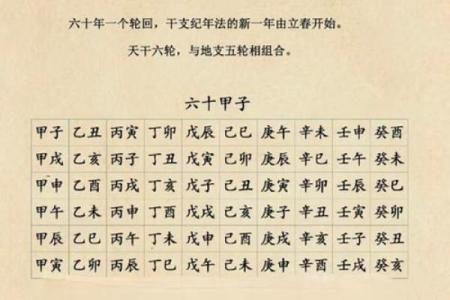 六十年一个轮回，干支纪年法的新一年由立春开始。
天干六轮，与地支五轮相组合。
六十甲子
甲子 乙丑 丙寅 丁卯 戊辰 己巳 庚午 辛未 壬申 癸酉
甲戌 乙亥 丙子 丁丑 戊寅 己卯 庚辰 辛巳 壬午 癸未
甲申 乙酉 丙戌 丁亥 戊子 己丑 庚寅 辛卯 壬辰 癸巳
甲午 乙未 丙申 丁酉 戊戌 己亥 庚子 辛丑 壬寅 癸卯
甲辰 乙巳 丙午 丁未 戊申 己酉 庚戌 辛亥 壬子 癸丑
甲寅 乙卯 丙辰 丁巳 戊午 己未 庚申 辛酉 壬戌 癸亥